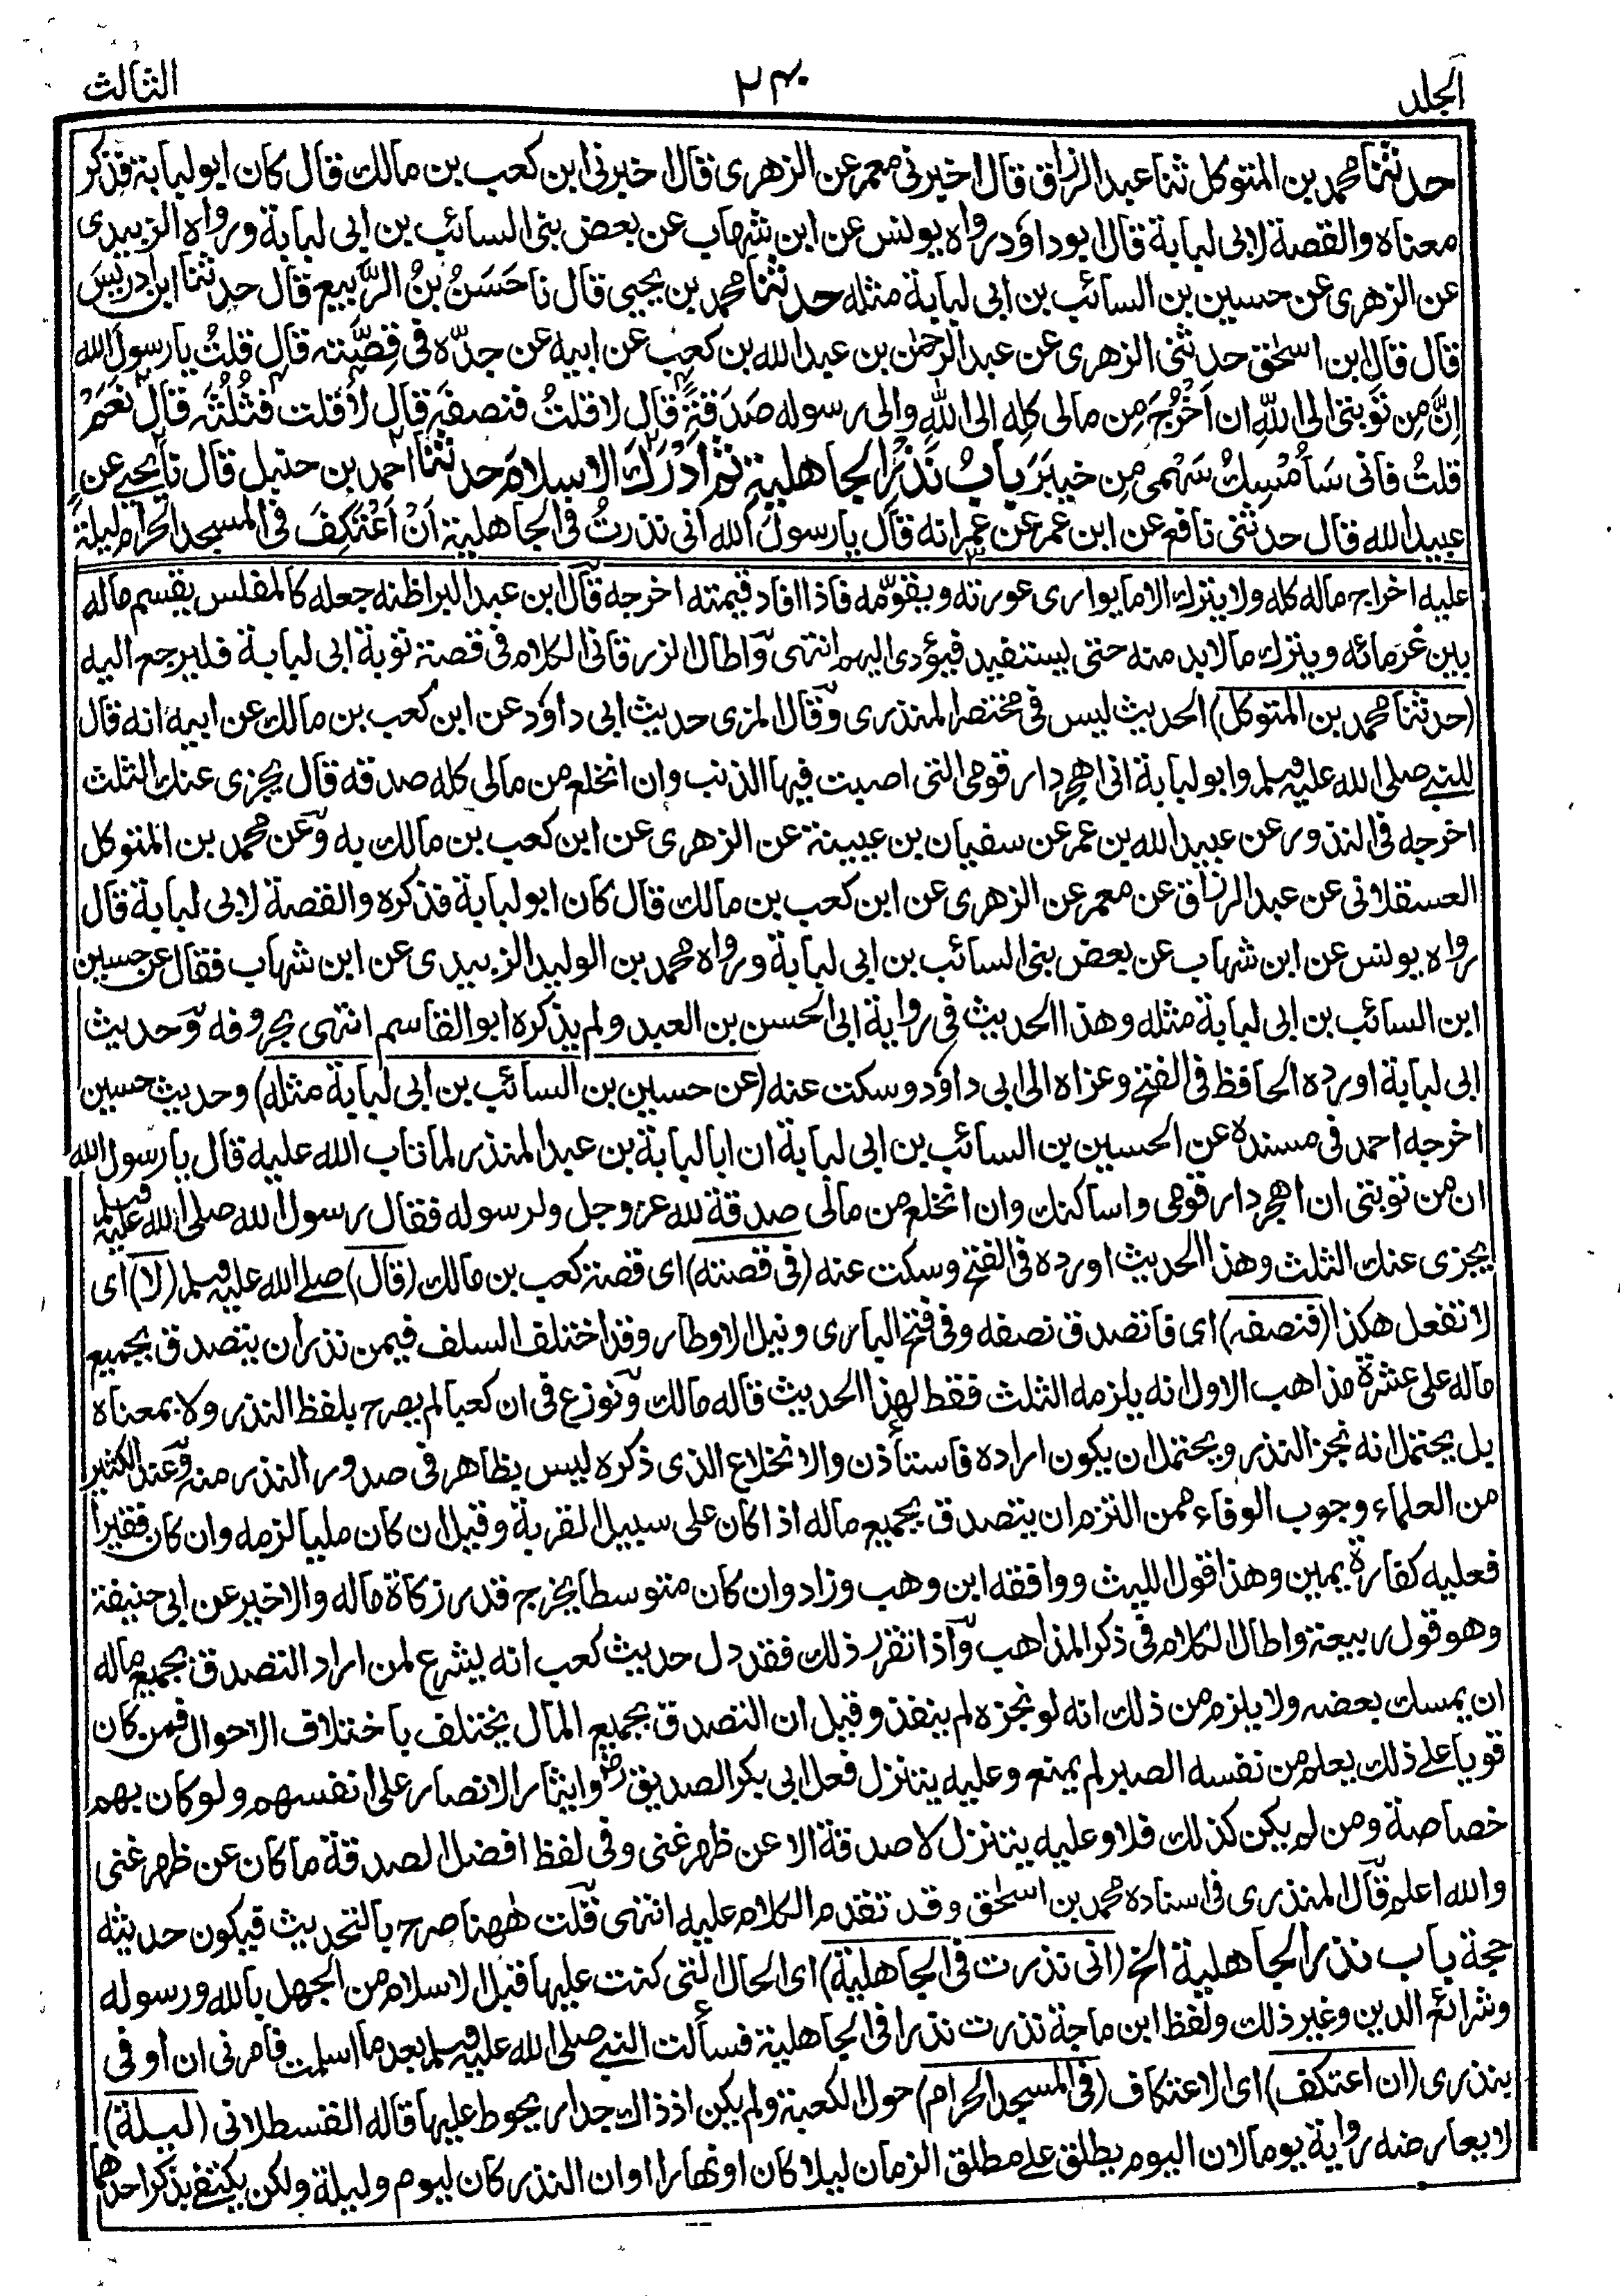 الجلد ٢٤٠ الثالث
حدثنا محمد بن المتوكل ثنا عبد الرزاق قال اخبرنى معمر عن الزهرى قال اخبرنى ابن كعب بن مالك قال كان ابو لبابة فذكر
معناه والقصة لابى لبابة قال ابو داؤد رواه يونس عن ابن شهاب عن بعض بنى السائب بن ابى لبابة ورواه الزبيدى
عن الزهرى عن حسين بن السائب بن ابى لبابة مثله حدثنا محمد بن يحيى قال نا حَسَنُ بنُ الرَّبيع قال حدثنا ابن ادريس
قال قال ابن اسحٰق حدثنى الزهرى عن عبد الرحمٰن بن عبد الله بن كعب عن ابيه عن جدّه فى قِصَّته قال قلتُ يا رسول الله
اِنَّ مِن تَوبتى الى اللهِ ان اَخْرُجَ مِن مالى كلِه الى اللهِ والى رسوله صَدَقةً قال لا قلتُ فنصفَه قال لا قلت فثُلُثَه قال نَعَمْ
قلتُ فانى سَاُمْسِكُ سَهْمى مِن خيبَرَ بابُ نَذْرُ الجاهلية ثم ادْرَكَ الاسلامَ حدثنا احمد بن حنبل قال نا يحيى عن
عبيد الله قال حدثنى نافع عن ابن عمر عن عمر انه قال يا رسولَ الله انى نذرتُ فى الجاهلية اَنْ اَعْتَكِفَ فى المسجد الحرام ليلةً
عليه اخراج ماله كله ولا يترك الا ما يوارى عورته ويقوّمه فاذا افاد قيمته اخرجه قال ابن عبد البر اظنه جعله كالمفلس يقسم ماله
بين غرمائه ويترك مالابد منه حتى يستفيد فيؤدى اليهم انتهى واطال الزرقانى الكلام فى قصة توبة ابى لبابة فليرجع اليه
(حدثنا محمد بن المتوكل) الحديث ليس فى مختصر المنذرى وقال المزى حديث ابى داؤد عن ابن كعب بن مالك عن ابيه انه قال
للنبى صلى الله عليه وسلم وابو لبابة انى اهجر دار قومى التى اصبت فيها الذنب وان انخلع من مالى كله صدقه قال يجزى عنك الثلث
اخرجه فى النذور عن عبيد الله بن عمر عن سفيان بن عيينة عن الزهرى عن ابن كعب بن مالك به وعن محمد بن المتوكل
العسقلانى عن عبد الرزاق عن معمر عن الزهرى عن ابن كعب بن مالك قال كان ابو لبابة فذكره والقصة لابى لبابة قال
رواه يونس عن ابن شهاب عن بعض بنى السائب بن ابى لبابة ورواه محمد بن الوليد الزبيدى عن ابن شهاب فقال عن حسين
ابن السائب بن ابى لبابة مثله وهذا الحديث فى رواية ابى الحسن بن العبد ولم يذكره ابو القاسم انتهى بحروفه وحديث
ابى لبابة اورده الحافظ فى الفتح وعزاه الى ابى داؤد وسكت عنه (عن حسين بن السائب بن ابى لبابة مثله) وحديث حسين
اخرجه احمد فى مسنده عن الحسين بن السائب بن ابى لبابة ان ابا لبابة بن عبد المنذر لما تاب الله عليه قال يا رسول الله
ان من توبتى ان اهجر دار قومى واساكنك وان انخلع من مالى صدقة لله عز وجل ولرسوله فقال رسول الله صلى الله عليه وسلم
يجزى عنك الثلث وهذا الحديث اورده فى الفتح وسكت عنه (فى قصته) اى قصة كعب بن مالك (قال) صلى الله عليه وسلم (لا) اى
لا تفعل هكذا (فنصفه) اى فاتصدق نصفه وفى فتح البارى ونيل الاوطار وقد اختلف السلف فيمن نذر ان يتصدق بجميع
ماله على عشرة مذاهب الاول انه يلزمه الثلث فقط لهذا الحديث قاله مالك ونوزع فى ان كعبا لم يصرح بلفظ النذر ولا بمعناه
بل يحتمل انه نجز النذر ويحتمل ان يكون اراده فاستأذن والانخلاع الذى ذكره ليس بظاهر فى صدور النذر منه وعند الكثير
من العلماء وجوب الوفاء ممن التزم ان يتصدق بجميع ماله اذا كان على سبيل القربة وقيل ان كان مليا لزمه وان كان فقيرا
فعليه كفارة يمين وهذا قول الليث ووافقه ابن وهب وزاد وان كان متوسطا يخرج قدر زكاة ماله والاخير عن ابى حنيفة
وهو قول ربيعة واطال الكلام فى ذكر المذاهب واذا تقرر ذلك فقد دل حديث كعب انه يشرع لمن اراد التصدق بجميع ماله
ان يمسك بعضه ولا يلزم من ذلك انه لو نجزه لم ينفذ وقيل ان التصدق بجميع المال يختلف باختلاف الاحوال فمن كان
قويا على ذلك يعلم من نفسه الصبر لم يمنع وعليه يتنزل فعل ابى بكر الصديق رض وايثار الانصار على انفسهم ولو كان بهم
خصاصة ومن لم يكن كذلك فلا وعليه يتنزل لا صدقة الا عن ظهر غنى وفى لفظ افضل الصدقة ما كان عن ظهر غنى
والله اعلم قال المنذرى فى اسناده محمد بن اسحٰق وقد تقدم الكلام عليه انتهى قلت ههنا صرح بالتحديث فيكون حديثه
حجة باب نذر الجاهلية الخ (انى نذرت فى الجاهلية) اى الحال التى كنت عليها قبل الاسلام من الجهل بالله ورسوله
وشرائع الدين وغير ذلك ولفظ ابن ماجة نذرت نذرا فى الجاهلية فسألت النبى صلى الله عليه وسلم بعد ما اسلمت فامرنى ان اوفى
بنذرى (ان اعتكف) اى الاعتكاف (فى المسجد الحرام) حول الكعبة ولم يكن اذ ذاك جدار يحوط عليها قاله القسطلانى (ليلة)
لا يعارضه رواية يوما لان اليوم يطلق على مطلق الزمان ليلا كان او نهارا او ان النذر كان ليوم وليلة ولكن يكتفى بذكر احدهما